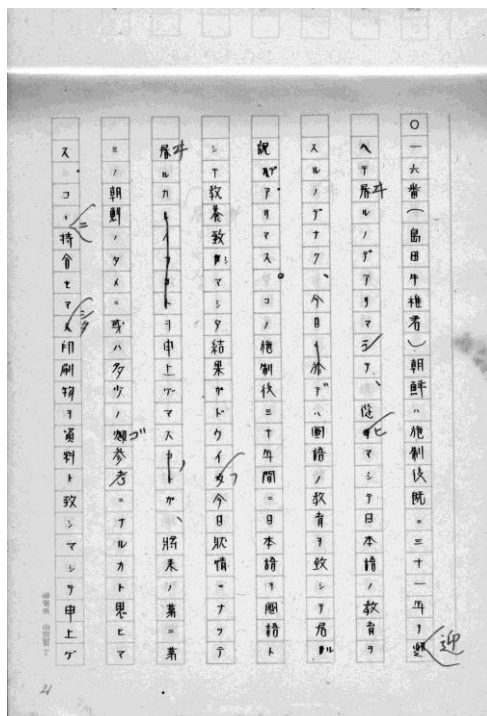 〇一六番(島田牛稚君)朝鮮ハ施制後既ニ三十一年ヲ迎
ヘテ居ヰルノデアリマシテ、従ヒマシテ日本語ノ教育ヲ
スルノデナク、今日ニ於デハ国語ノ教育ヲ致シテ居ル
訳デアリマス。コノ施制後三十年間ニ日本語ヲ国語ト
シテ教養致シマシタ結果ガドウイフ今日状情ニナツテ
居ヰルカトイフコトヲ申上ゲマスガ、将来ノ第二第
三ノ朝鮮ノタメニ或ハ多少ノゴ参考ニナルカト思ヒマ
ス。ココニ持合セマシタ印刷物ヲ資料ト致シマシテ申上ゲ
21